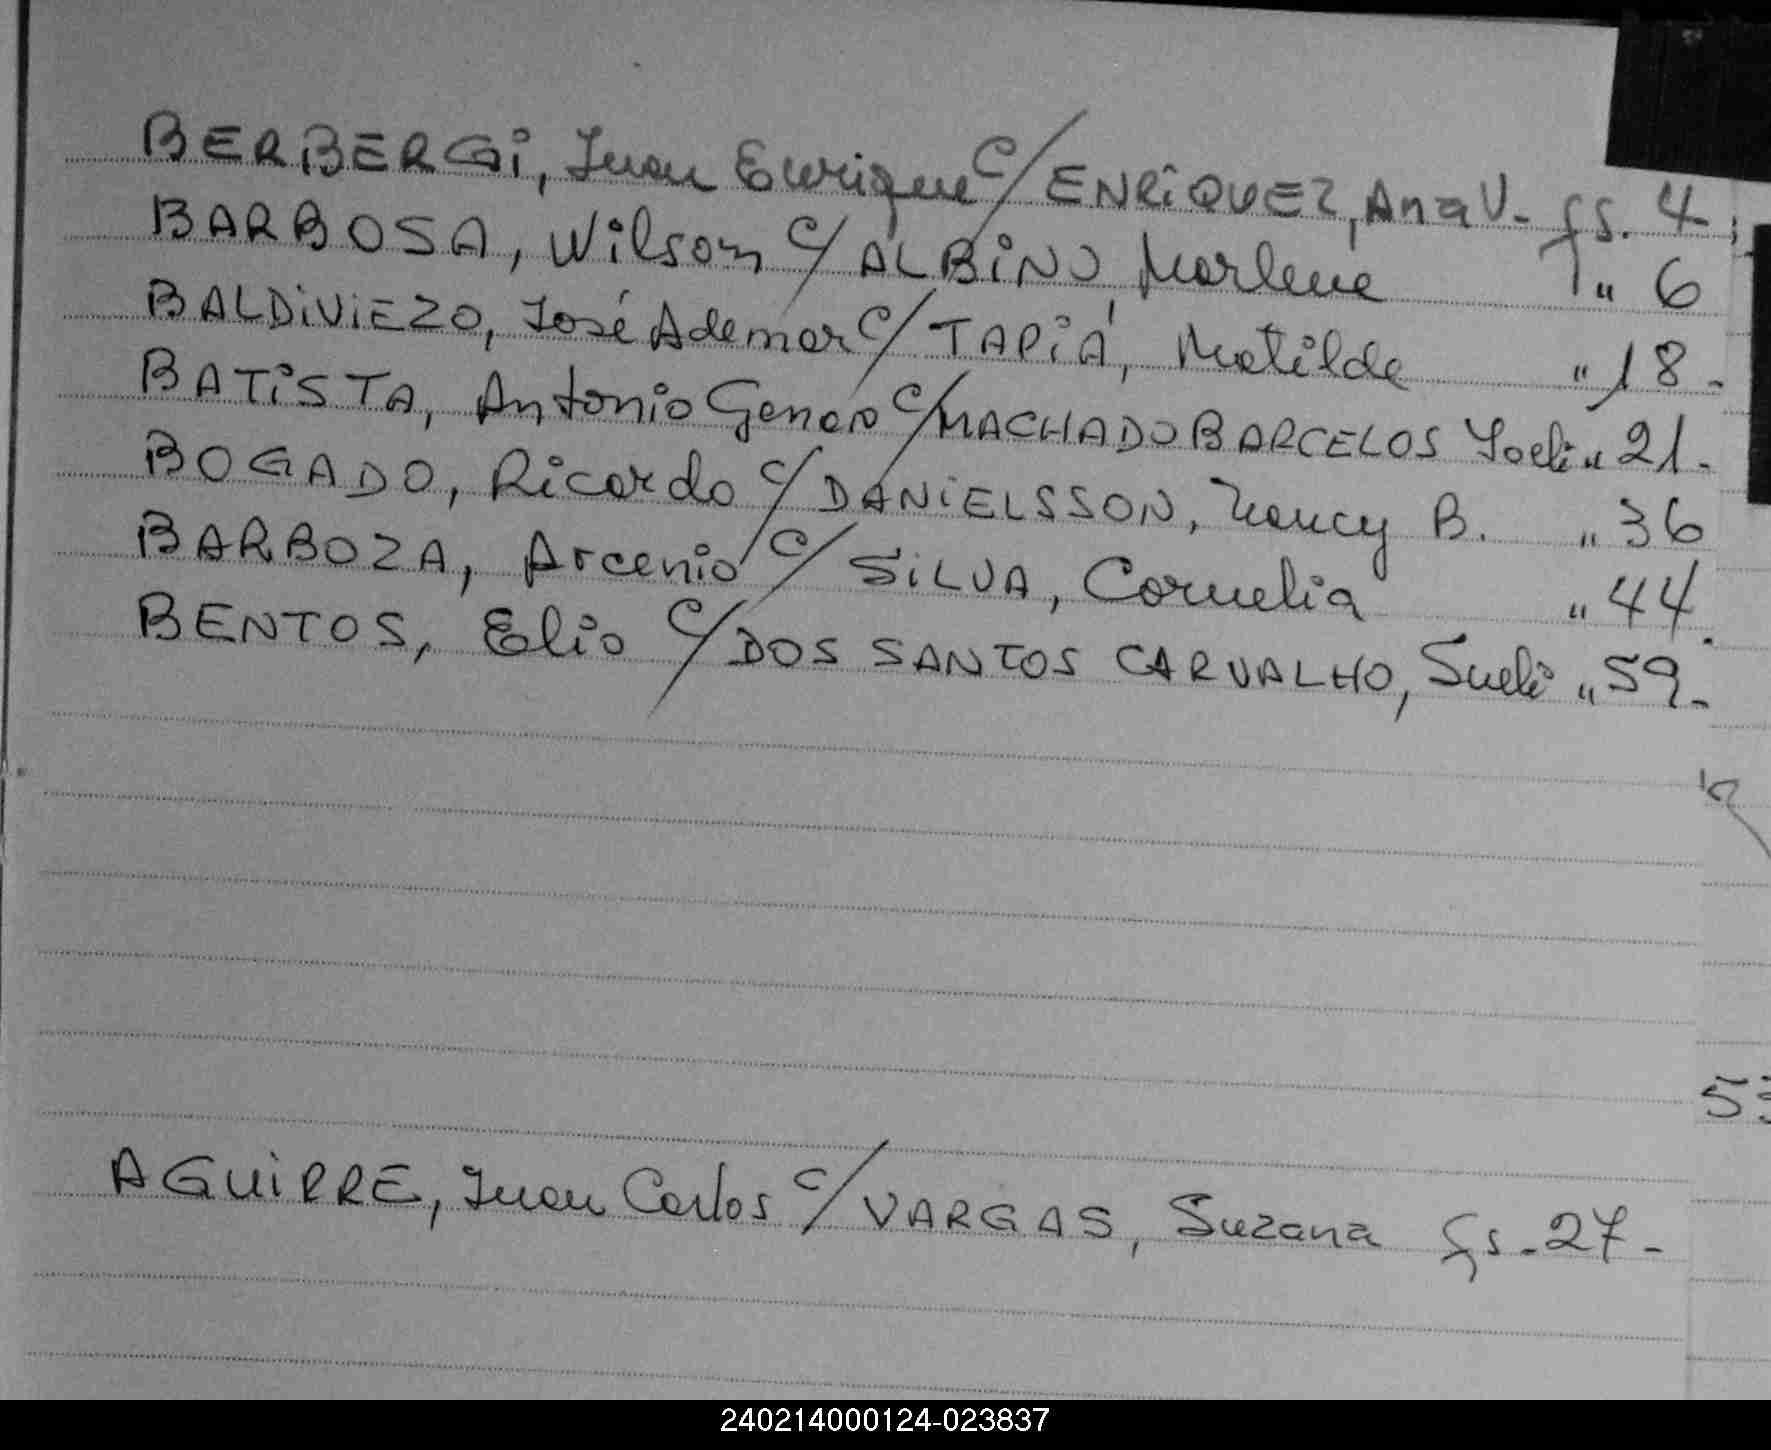 BERBERGi, Juan Enrique c/ ENRiQUEZ, Ana V- fs. 4-;
BARBOSA, Wilson c/ ALBiNO, Marlene " 6
BALDiViEZO, José Ademar c/ TAPiA, Matilde " 18-
BATiSTA, Antonio Genaro c/ MACHADO BARCELOS " 21-
BOGADO, Ricardo c/ DANiELSSON, Nancy B. " 36
BARBOZA, Arcenio c/ SiLVA, Cornelia " 44.
BENTOS, Elio c/ DOS SANTOS CARVALHO, Sueli " 59-
AGUiRRE, Juan Carlos c/ VARGAS, Suzana fs-27-
240214000124-023837